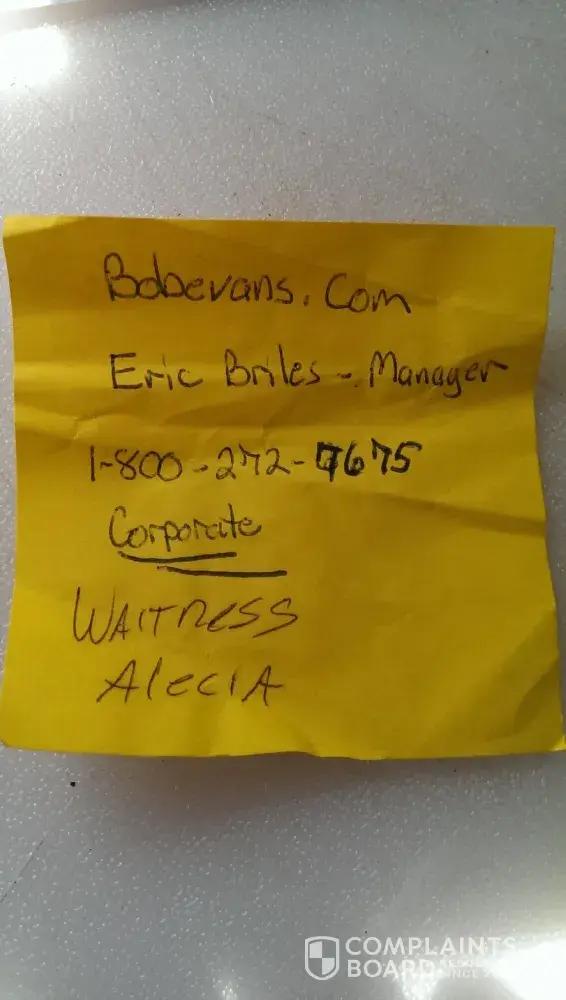 Bobevans.com
Eric Briles - Manager
1-800-272-7675
Corporate
WAITRESS
AlecIA
COMPLAINTS
BOARD